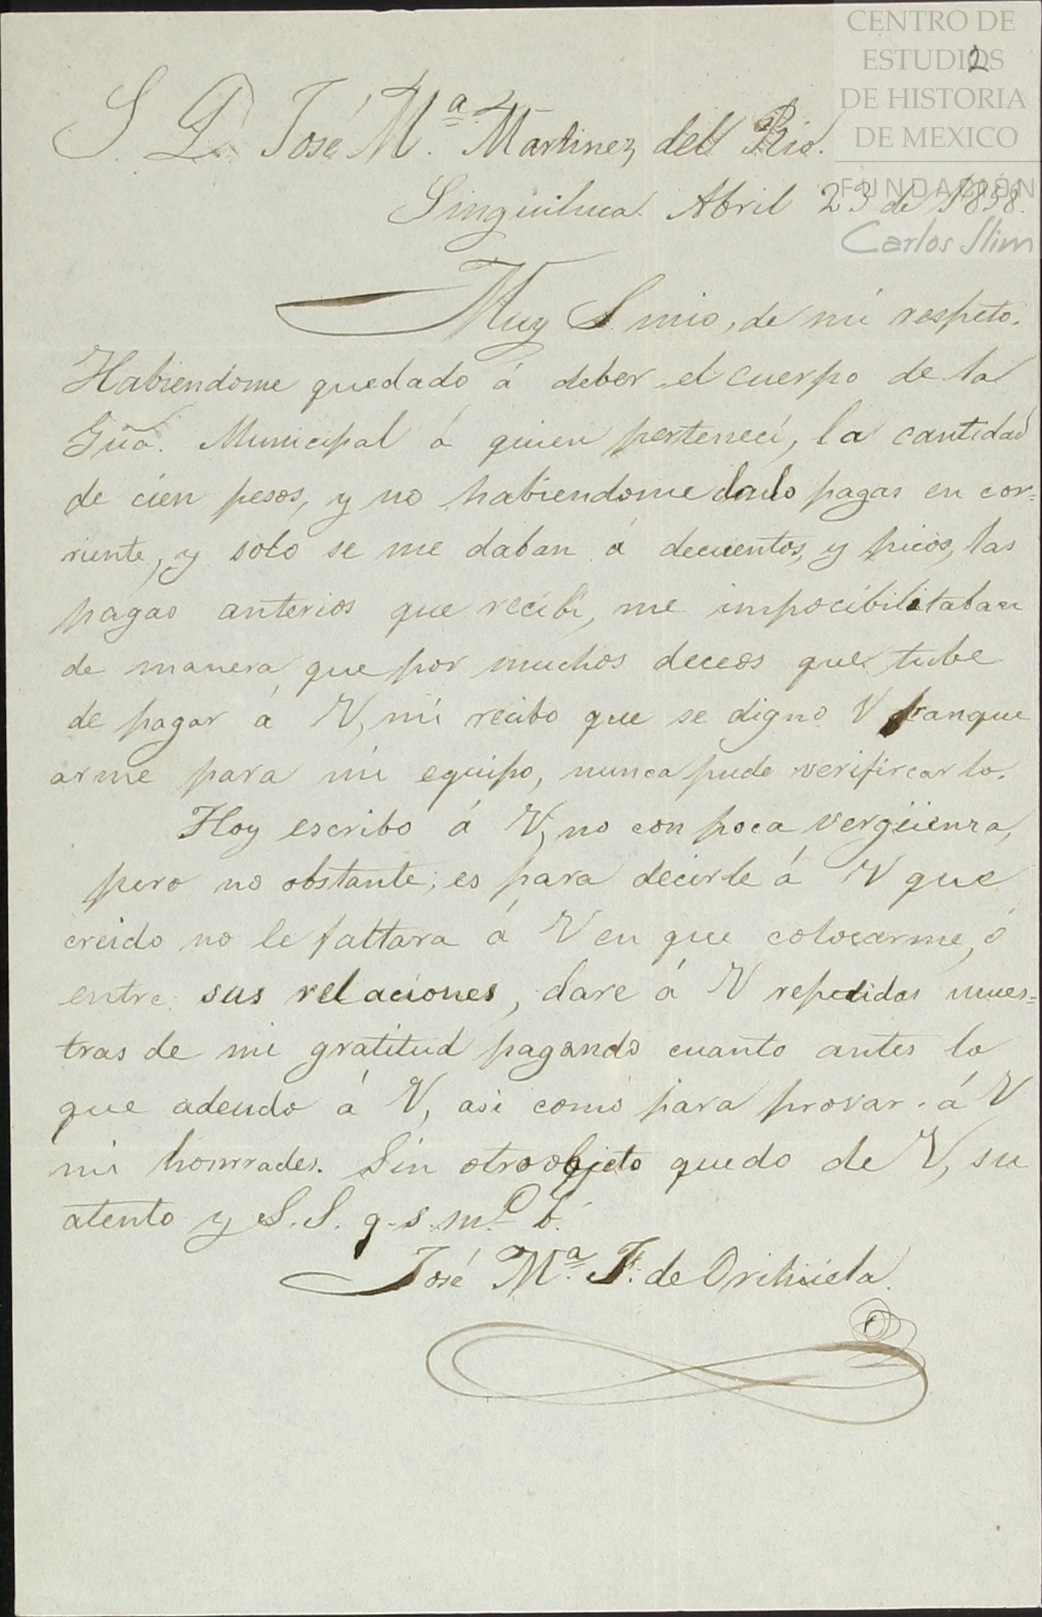 CENTRO DE
ESTUDIOS
DE HISTORIA
DE MEXICO
FUNDACIÓN
Carlos Slim
2
S. D. José M.ª Martinez del Rio.
Singuiluca. Abril 23 de 1858.
Muy S. mio, de mi respeto.
Habiendome quedado á deber el cuerpo de la
Gũa. Municipal á quien perteneci, la cantidad
de cien pesos, y no habiendome dado pagas en cor=
riente, y solo se me daban á decuentos, y picos, las
pagas anterios que recibi, me impocibilitaban
de manera que por muchos deceos que tube
de pagar á V, mi recibo que se digno V franque
arme para mi equipo, nunca pude verifircarlo.
Hoy escribo á V, no con poca vergüenza,
pero no obstante; es para decirle á V que
creido no le faltara á V en que colocarme, ó
entre sus relaciones, dare á V repetidas mues=
tras de mi gratitud pagando cuanto antes lo
que adeudo á V, asi como para provar á V
mi honrrades. Sin otro objeto quedo de V, su
atento y S. S. q. s. m. b.
José M.ª F. de Orihuela.